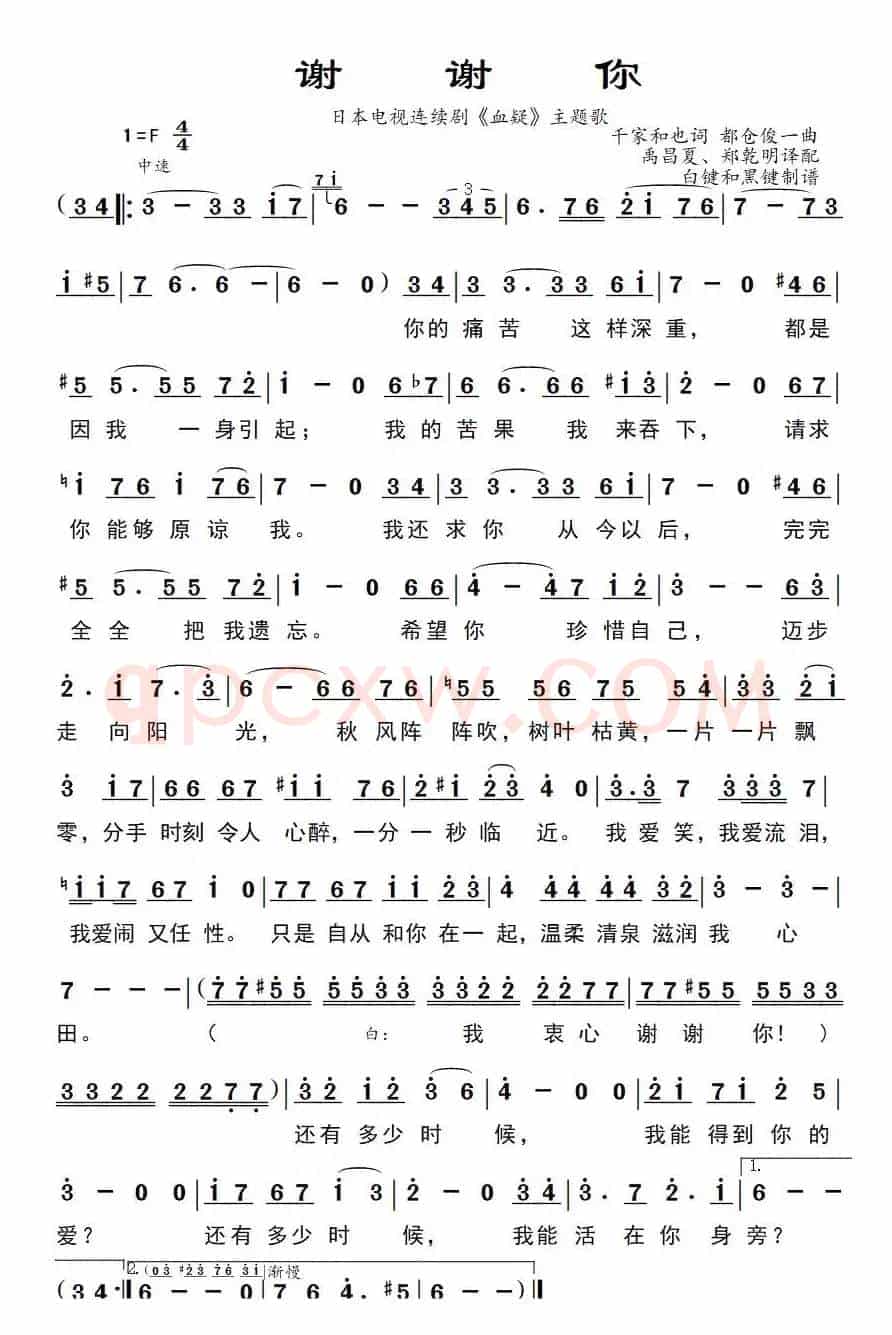 谢 谢 你
日本电视连续剧《血疑》主题歌
1=F 4/4
千家和也词 都仓俊一曲
中速
禹昌夏、郑乾明译配
白键和黑键制谱
7 i
(3 4 ‖: 3 – 3 3 i 7 | 6 – – 3 4 5 | 6 . 7 6 2 i 7 6 | 7 – 7 3
i #5 | 7 6 . 6 – | 6 – 0 ) 3 4 | 3 3 . 3 3 6 i | 7 – 0 #4 6
你的 痛 苦 这 样 深 重， 都是
#5 5 . 5 5 7 2 | i – 0 6 b7 | 6 6 . 6 6 #i 3 | 2 – 0 6 7
因 我 一 身 引 起； 我 的 苦 果 我 来 吞 下， 请 求
♮i 7 6 i 7 6 | 7 – 0 3 4 | 3 3 . 3 3 6 i | 7 – 0 #4 6
你 能 够 原 谅 我。 我 还 求 你 从 今 以 后， 完 完
#5 5 . 5 5 7 2 | i – 0 6 6 | 4 – 4 7 i 2 | 3 – – 6 3
全 全 把 我 遗 忘。 希 望 你 珍 惜 自 己， 迈 步
2 . i 7 . 3 | 6 – 6 6 7 6 | ♮5 5 5 6 7 5 5 4 | 3 7 2 i
走 向 阳 光， 秋 风 阵 阵 吹，树 叶 枯 黄，一 片 一 片 飘
qpcxw.COM
3 i 7 | 6 6 6 7 #i i 7 6 | 2 #i 2 3 4 0 | 3 . 3 7 3 3 3 7
零，分 手 时 刻 令 人 心 醉，一 分 一 秒 临 近。 我 爱 笑，我 爱 流 泪，
♮i i 7 6 7 i 0 | 7 7 6 7 i i 2 3 | 4 4 4 4 4 3 2 | 3 – 3 –
我 爱 闹 又 任 性。 只 是 自 从 和 你 在 一 起，温 柔 清 泉 滋 润 我 心
7 – – – | ( 7 7 #5 5 5 5 3 3 3 3 2 2 2 2 7 7 | 7 7 #5 5 5 5 3 3
田。 （ 白： 我 衷 心 谢 谢 你！）
3 3 2 2 2 2 7 7 ) | 3 2 i 2 3 6 | 4 – 0 0 | 2 i 7 i 2 5
还 有 多 少 时 候， 我 能 得 到 你 的
1.
3 – 0 0 | i 7 6 7 i 3 | 2 – 0 3 4 | 3 . 7 2 . i | 6 – –
爱？ 还 有 多 少 时 候， 我 能 活 在 你 身 旁？
2. ( 0 3 #2 3 7 6 3 i 渐慢
( 3 4 :‖ 6 – – 0 | 7 6 4 . #5 | 6 – – ) ‖